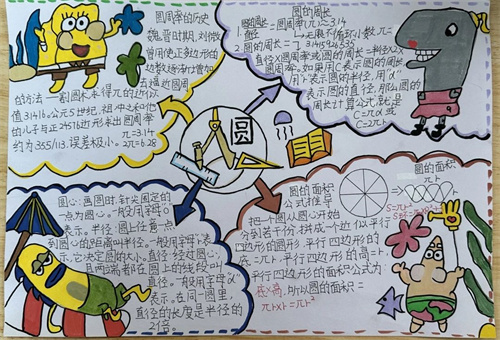 圆周率的历史
魏晋时期,刘徽
曾用使正多边形的
边数逐渐增加
去逼近圆周
的方法—割圆术来得π的近似
值3.1416。公元5世纪,祖冲之和他
的儿子与正24576边形求出圆周率
π=3.14
约为355/113,误差极小。2π=6.28
圆的周长
=圆周率 π≈3.14
无限不循环小数 π=
2.圆的周长=
直径×圆周率或圆的周长=半径×2×
圆周率。如果用C表示圆的周长,
用r表示圆的半径,用"d"
表示圆的直径,那么圆的
周长计算公式就是
C=πd或
C=2πr
圆
圆心:画圆时,针尖固定的
一点为圆心。一般用字母O
表示。半径:圆上任意一点
到圆心的距离叫半径。一般用字母r表
示,它决定圆的大小。直径:经过圆心,
且两端都在圆上的线段叫
直径。一般用字母d
表示。在同一圆里,
直径的长度是半径的
2倍。
圆的面积
圆的面积
公式推导
S=πr²
把一个圆从圆心开始
分割若干份,拼成一个近似平行
四边形的图形,平行四边形的
底=πr,平行四边形的高=r,
平行四边形的面积公式为:
底×高,所以圆的面积=
πr×r=πr²